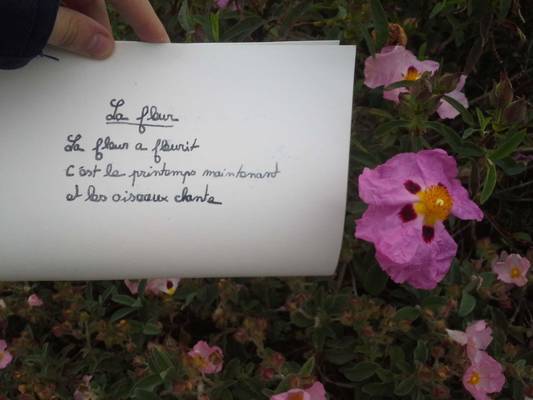 La fleur
La fleur a fleurit
C'est le printemps maintenant
et les oiseaux chante